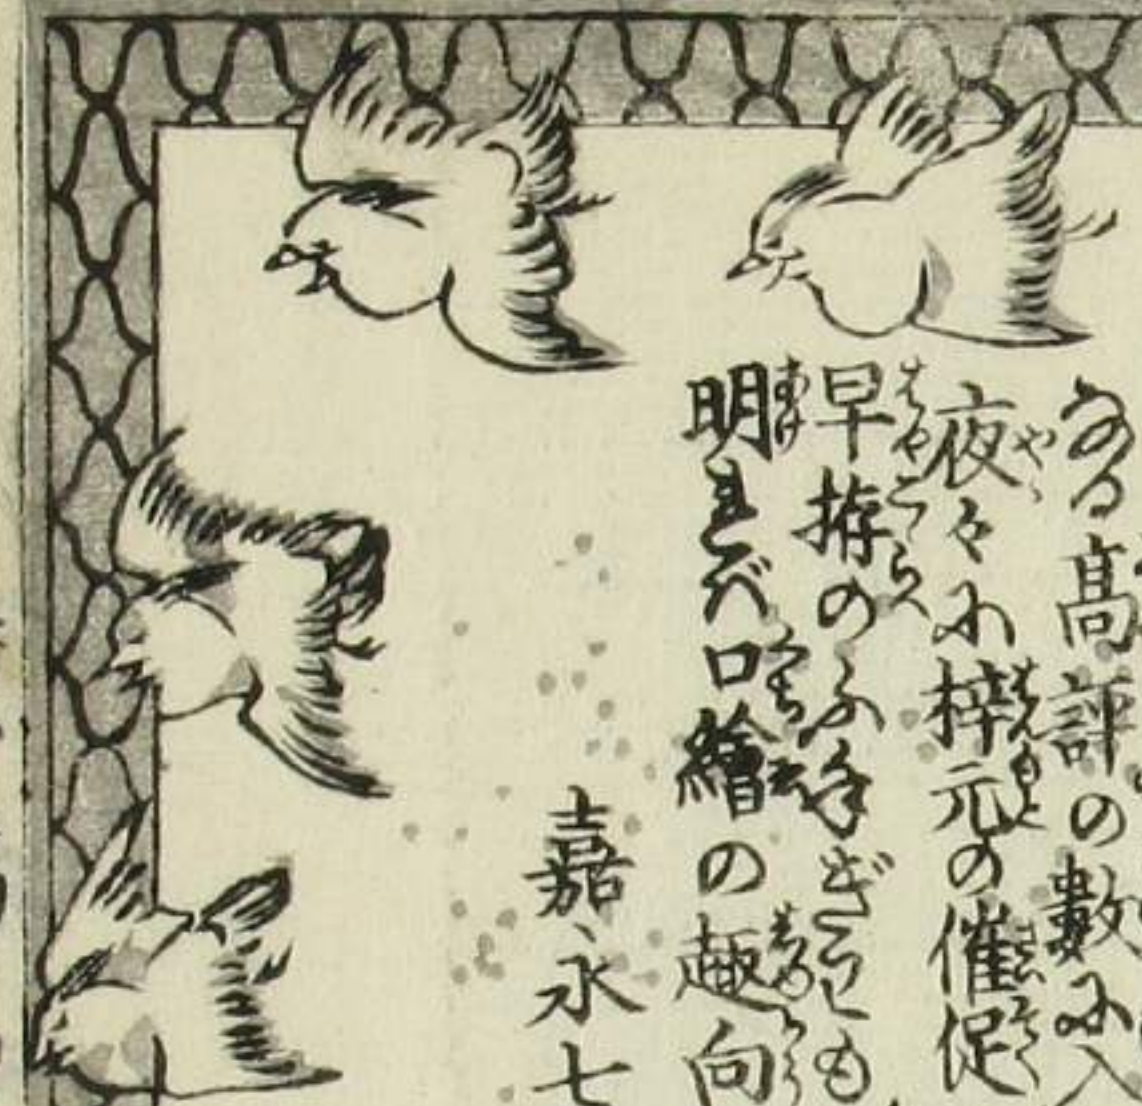 なる高評の數に入
夜々に梓元の催促
早拵のふ手ぎ
明れバ口繪の趣向
嘉永七